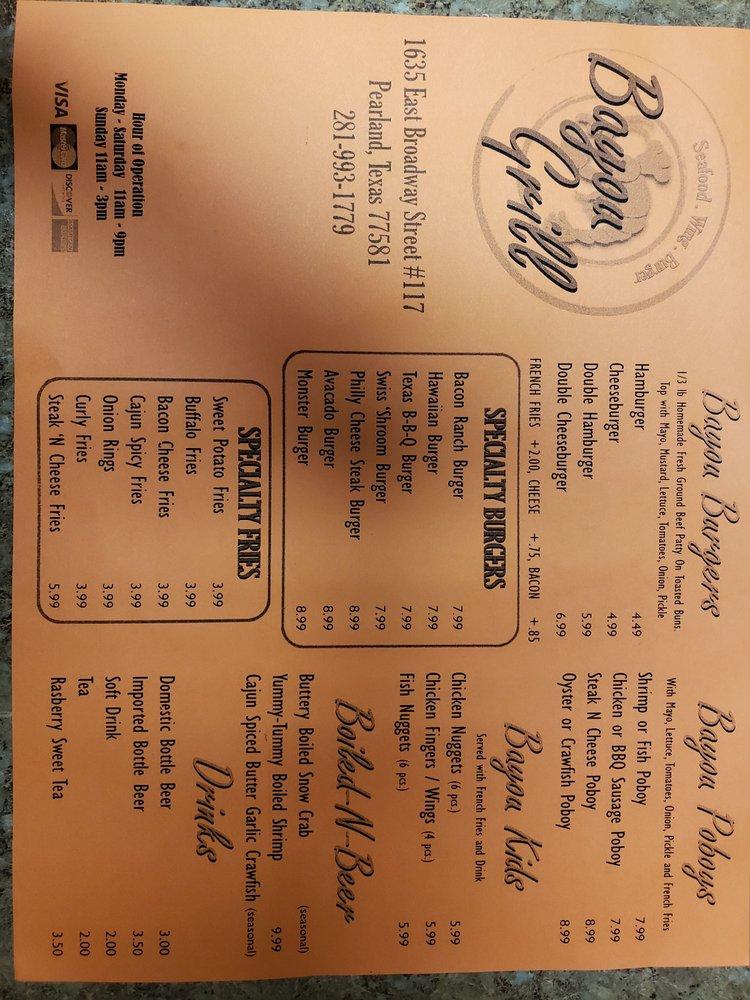 Seafood . Wing . Burger
Bayou
Grill
1635 East Broadway Street #117
Pearland, Texas 77581
281-993-1779
Hour of Operation
Monday - Saturday 11am - 9pm
Sunday 11am - 3pm
VISA MasterCard DISCOVER
Bayou Burgers
1/3 lb Homemade Fresh Ground Beef Patty On Toasted Buns.
Top with Mayo, Mustard, Lettuce, Tomatoes, Onion, Pickle
Hamburger 4.49
Cheeseburger 4.99
Double Hamburger 5.99
Double Cheeseburger 6.99
FRENCH FRIES +2.00, CHEESE +.75, BACON +.85
SPECIALTY BURGERS
Bacon Ranch Burger 7.99
Hawaiian Burger 7.99
Texas B-B-Q Burger 7.99
Swiss 'Shroom Burger 7.99
Philly Cheese Steak Burger 8.99
Avacado Burger 8.99
Monster Burger 8.99
SPECIALTY FRIES
Sweet Potato Fries 3.99
Buffalo Fries 3.99
Bacon Cheese Fries 3.99
Cajun Spicy Fries 3.99
Onion Rings 3.99
Curly Fries 3.99
Steak 'N Cheese Fries 5.99
Bayou Poboys
With Mayo, Lettuce, Tomatoes, Onion, Pickle and French Fries
Shrimp or Fish Poboy 7.99
Chicken or BBQ Sausage Poboy 7.99
Steak N Cheese Poboy 8.99
Oyster or Crawfish Poboy 8.99
Bayou Kids
Served with French Fries and Drink
Chicken Nuggets (6 pcs.) 5.99
Chicken Fingers / Wings (4 pcs.) 5.99
Fish Nuggets (6 pcs.) 5.99
Boiled-N-Beer
Buttery Boiled Snow Crab (seasonal)
Yummy-Tummy Boiled Shrimp 9.99
Cajun Spiced Butter Garlic Crawfish (seasonal)
Drinks
Domestic Bottle Beer 3.00
Imported Bottle Beer 3.50
Soft Drink 2.00
Tea 2.00
Rasberry Sweet Tea 3.50